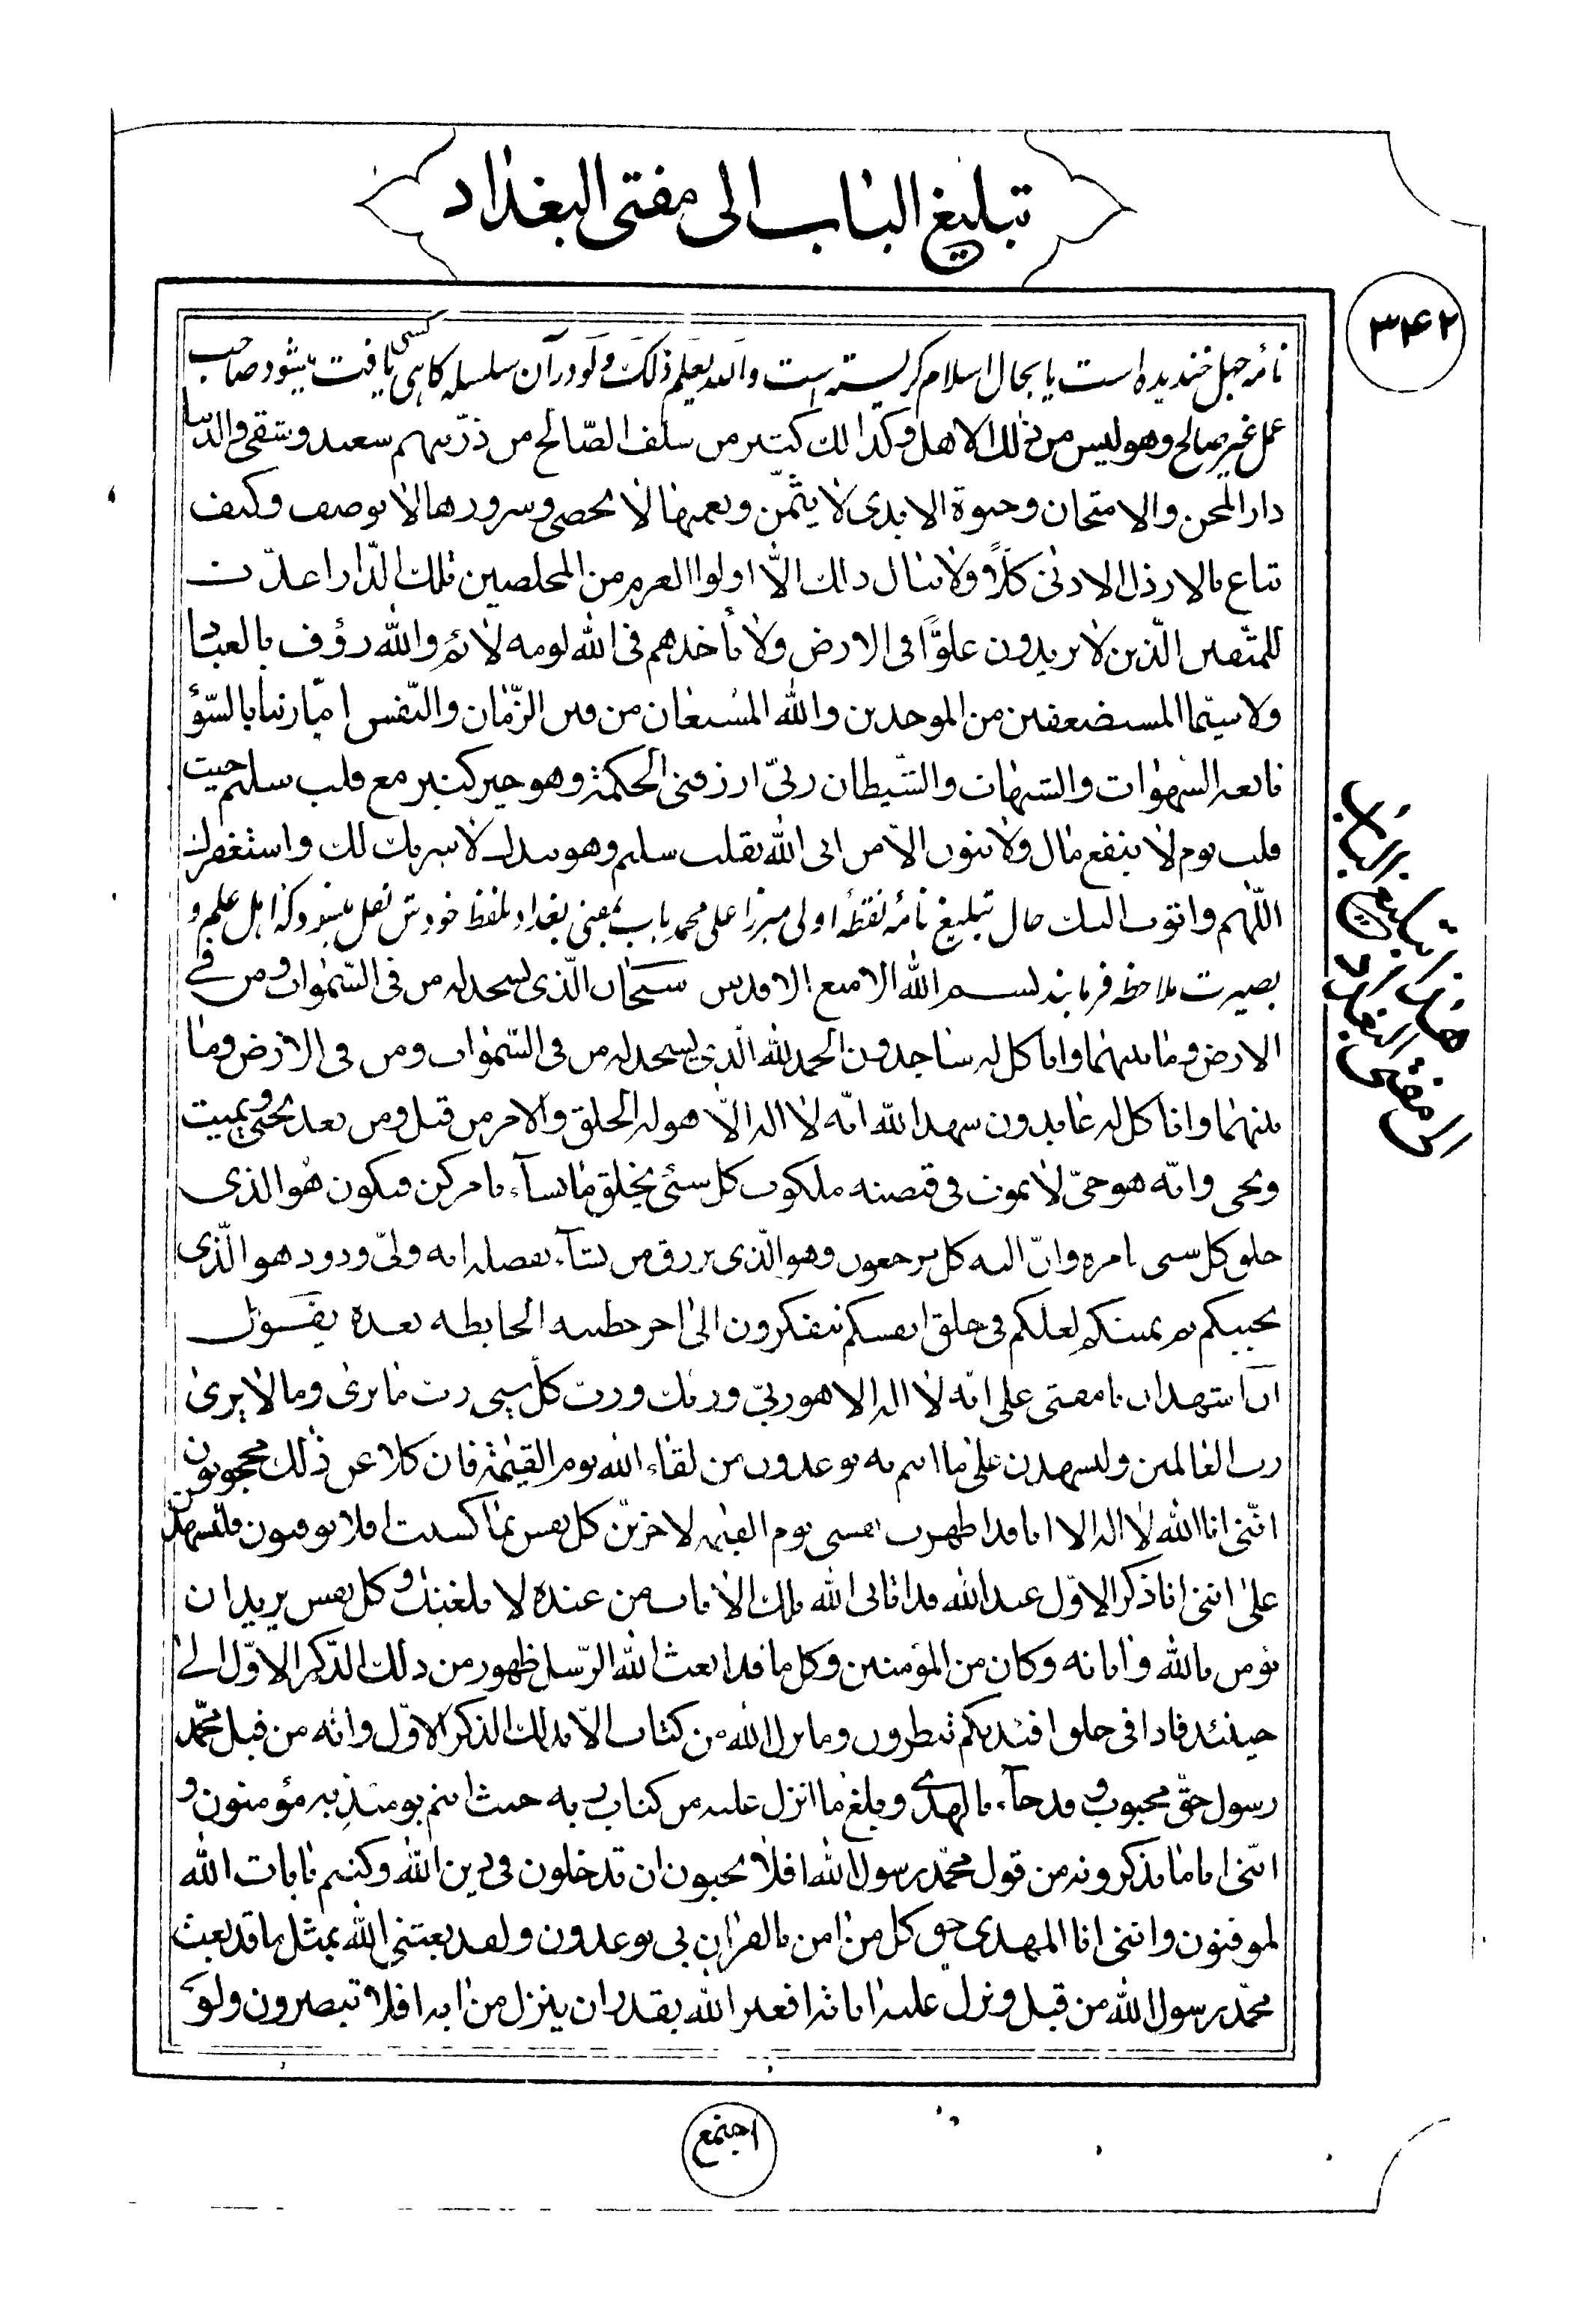 تبليغ الباب الى مفتى البغداد
٣٤٢
نامه جهل خنديده است يا بحال اسلام گريسته است والله يعلم ذلك ولو در آن سلسله گاهى كسى يافت ميشود صاحب
عمل غير صالح وهو ليس من ذلك الاهل وكذالك كثير من سلف الصّالح من ذرّيتهم سعيد وشقى والدّنيا
دار المحن والامتحان وحيوة الابدى لا يثمّن ونعيمها لا يحصى وسرورها لا يوصف وكيف
تباع بالارذل الادنى كلّا ولا ينال ذالك الّا اولوا العزم من المخلصين تلك الدّار اعدّت
للمتّقين الّذين لا يريدون علوًّا فى الارض ولا تأخذهم فى الله لومة لائم والله رؤف بالعباد
ولا سيّما المستضعفين من الموحدين والله المستعان من فتن الزّمان والنّفس امّارتنا بالسّوء
تابعة الشهوات والشبهات والشّيطان ربّى ارزقنى الحكمة وهو خير كثير مع قلب سليم حيث
قلت يوم لا ينفع مال ولا بنون الّا من اتى الله بقلب سليم وهو بيدك لا شريك لك واستغفرك
اللّهم واتوب اليك حال تبليغ نامه نقطه اولى ميرزا على محمد باب بمفتى بغداد بلفظ خودش نقل ميشود كه اهل علم و
بصيرت ملاحظه فرمايند بسم الله الامنع الاقدس سبحان الّذى يسجد له من فى السّموات ومن فى
الارض وما بينهما وانا كل له ساجدون الحمد لله الّذى يسجد له من فى السّموات ومن فى الارض وما
بينهما وانا كل له عابدون شهد الله انّه لا اله الّا هو له الخلق والامر من قبل ومن بعد يحيى ويميت
ويحيى وانّه هو حىّ لا يموت فى قبضته ملكوت كل شىء يخلق ما يشآء بامر كن فيكون هو الذى
خلق كل شىء بامره وانّ اليه كل يرجعون وهو الّذى يرزق من يشآء بفضله انه ولىّ ودود هو الّذى
يحييكم ثم يميتكم لعلكم فى خلق انفسكم تتفكرون الى اخر خطبته الخابطه بعده يقول
ان اشهدان يا مفتى على انّه لا اله الا هو ربّى وربّك وربّ كلّ شىء ربّ ما يرى وما لا يرى
رب العالمين ولتشهدن على ما انتم به توعدون من لقاء الله يوم القيمة فان كلا عن ذلك محجوبون
انّنى انا الله لا اله الا انا قد اظهرت نفسى يوم القيمه لاجزينّ كل نفس بما كسبت افلا توقنون فلتشهدن
على اننى انا ذكر الاوّل عبد الله قد اتانى الله تلك الايات من عنده لابلغنك وكل نفس يريد ان
يؤمن بالله واياته وكان من المؤمنين وكل ما قد بعث الله الرّسل ظهور من ذلك الذّكر الاوّل الى
حينئذ فاذا فى خلق افئدتكم تنظرون وما نزل الله من كتاب الا بذلك الذكر الاوّل وانه من قبل محمّد
رسول حقّ محبوب وقد جآء بالهدى وبلغ ما انزل عليه من كتاب ربه حيث انتم يومئذ به مؤمنون و
انّنى انا ما تذكرونه من قول محمّد رسول الله افلا تحبون ان تدخلون فى دين الله وكنتم بايات الله
لموقنون واننى انا المهدى حق كل من امن بالقران بى توعدون ولقد بعثنى الله بمثل ما قد بعث
محمّد رسول الله من قبل ونزل عليه اياته افغير الله يقدر ان ينزل من ايه افلا تبصرون ولو
هذا تبليغ الباب
الى مفتى البغداد
اجتمع